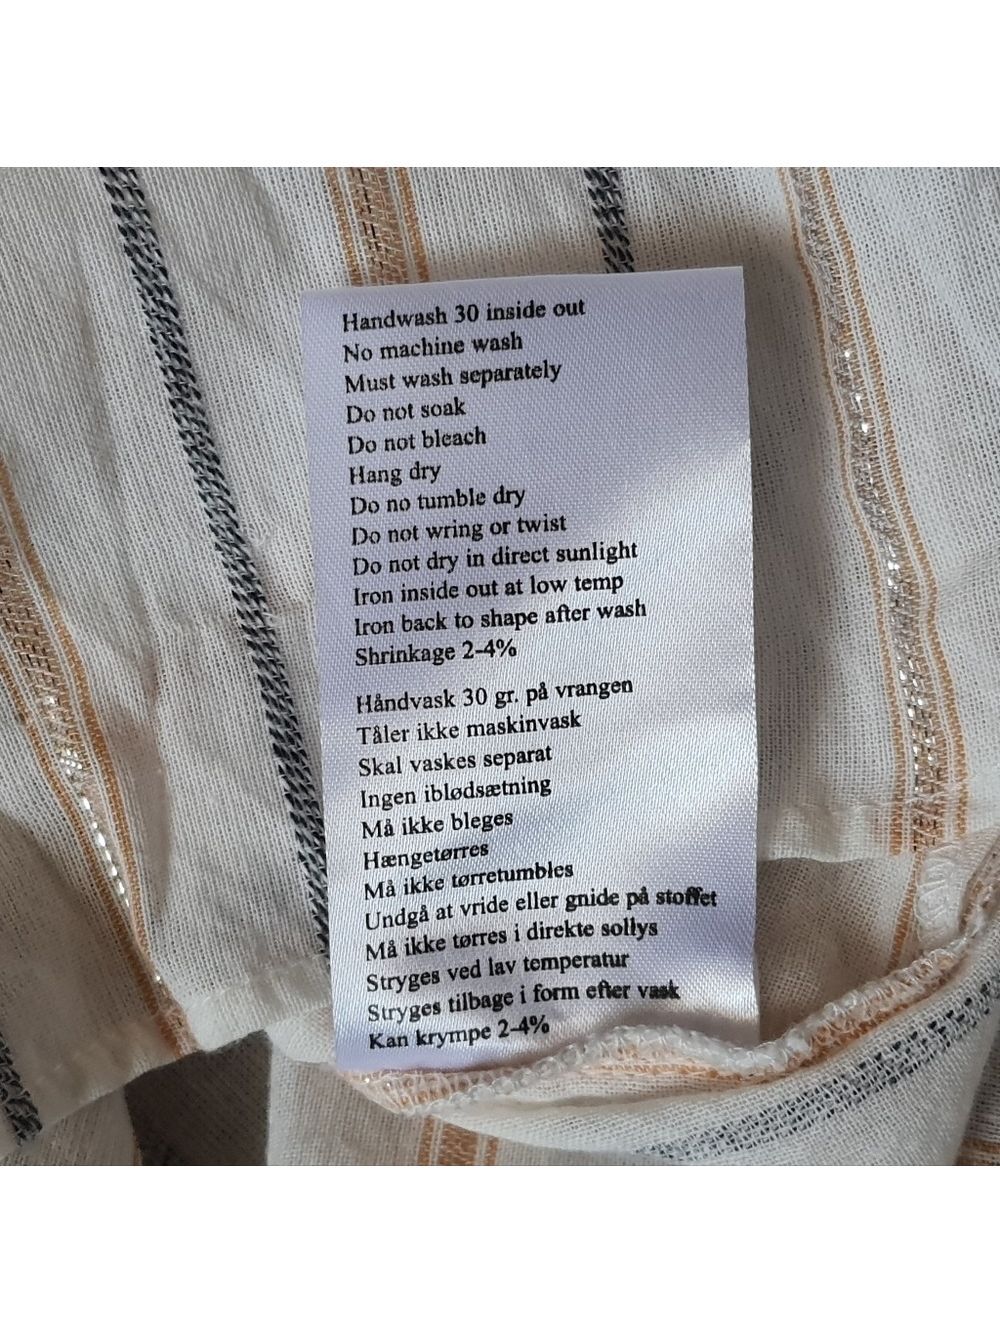 Handwash 30 inside out
No machine wash
Must wash separately
Do not soak
Do not bleach
Hang dry
Do no tumble dry
Do not wring or twist
Do not dry in direct sunlight
Iron inside out at low temp
Iron back to shape after wash
Shrinkage 2-4%
Håndvask 30 gr. på vrangen
Tåler ikke maskinvask
Skal vaskes separat
Ingen iblødsætning
Må ikke bleges
Hængetørres
Må ikke tørretumbles
Undgå at vride eller gnide på stoffet
Må ikke tørres i direkte sollys
Stryges ved lav temperatur
Stryges tilbage i form efter vask
Kan krympe 2-4%